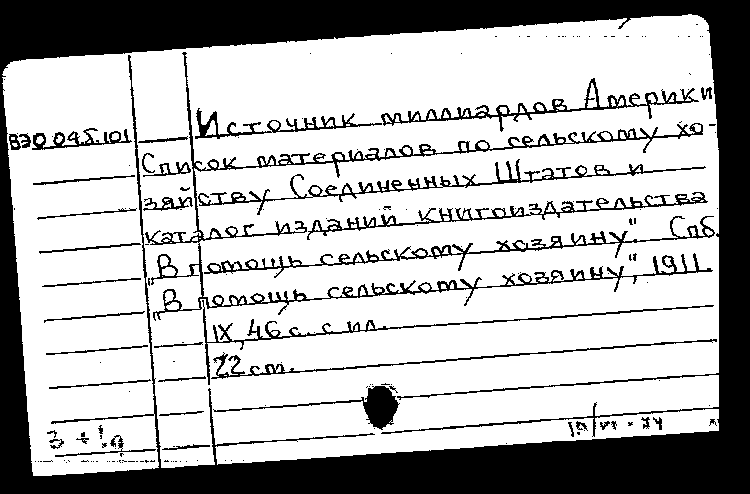 ВЭО 045.101
Источник миллиардов Америки
Список материалов по сельскому хо-
зяйству Соединенных Штатов и
каталог изданий книгоиздательства
„В помощь сельскому хозяину". Спб.
„В помощь сельскому хозяину", 1911.
IX, 46 с. с ил.
22 ст.